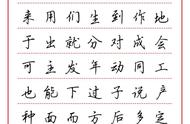 来用们生到作地
于出就分对成会
可主发年动同工
也能下过子说产
种面而方后多定